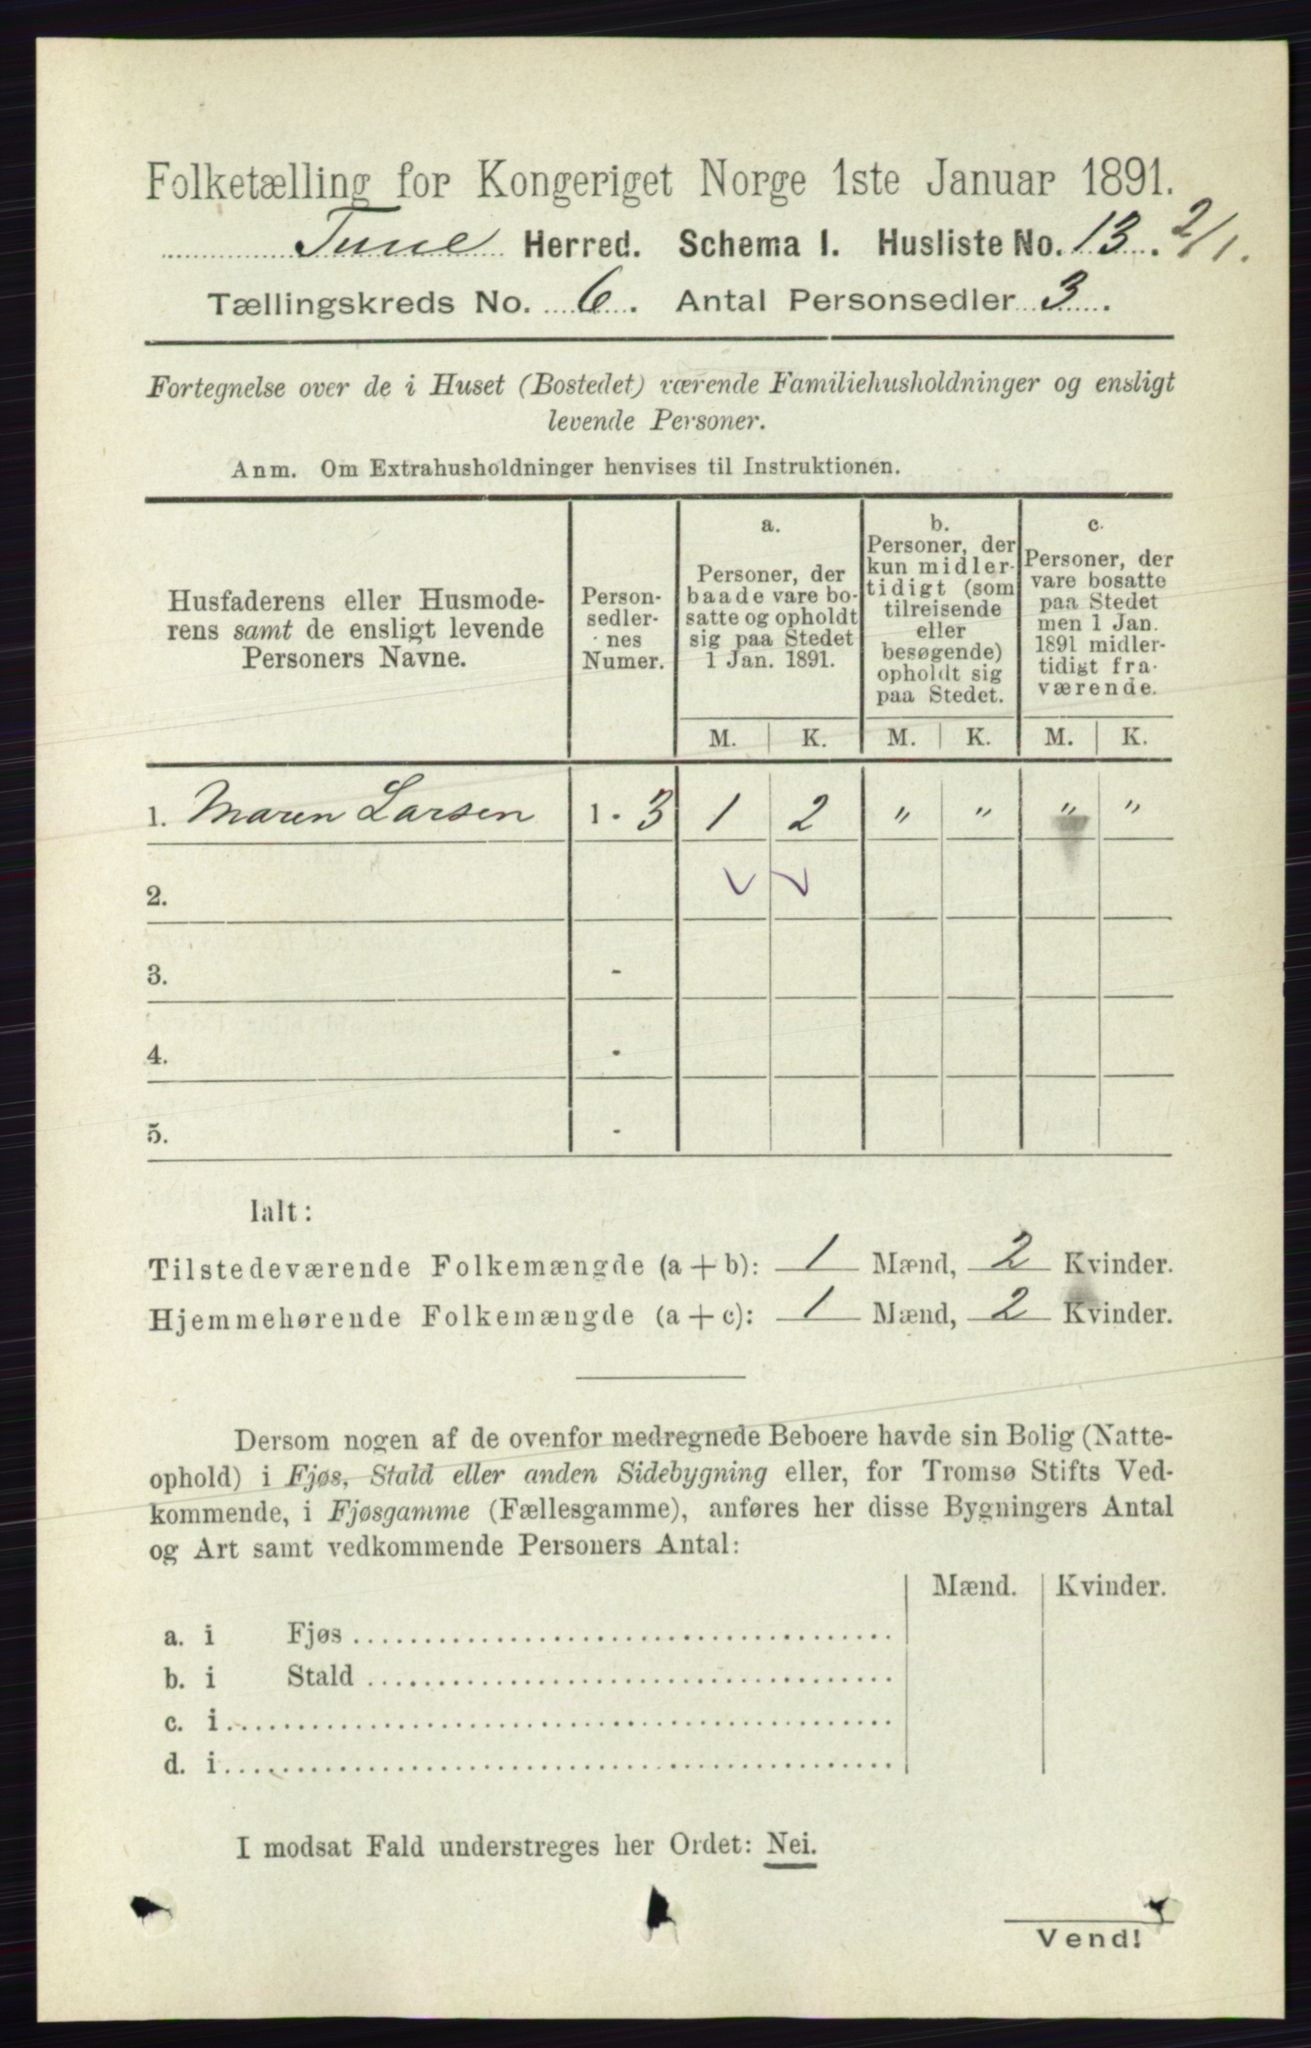 Folketælling for Kongeriget Norge 1ste Januar 1891.
Tune Herred. Schema I. Husliste No. 13. 2/1.
Tællingskreds No. 6. Antal Personsedler 3.
Fortegnelse over de i Huset (Bostedet) værende Familiehusholdninger og ensligt
levende Personer.
Anm. Om Extrahusholdninger henvises til Instruktionen.
Husfaderens eller Husmode-
rens samt de ensligt levende
Personers Navne.
Person-
sedler-
nes
Numer.
a.
Personer, der
baade vare bo-
satte og opholdt
sig paa Stedet
1 Jan. 1891.
b.
Personer, der
kun midler-
tidigt (som
tilreisende
eller
besøgende)
opholdt sig
paa Stedet.
c.
Personer, der
vare bosatte
paa Stedet
men 1 Jan.
1891 midler-
tidigt fra-
værende.
M. K. M. K. M. K.
1. Maren Larsen 1 - 3 1 2 " " " "
2.
3. -
4. -
5. -
Ialt:
Tilstedeværende Folkemængde (a + b): 1 Mænd, 2 Kvinder.
Hjemmehørende Folkemængde (a + c): 1 Mænd, 2 Kvinder.
Dersom nogen af de ovenfor medregnede Beboere havde sin Bolig (Natte-
ophold) i Fjøs, Stald eller anden Sidebygning eller, for Tromsø Stifts Ved-
kommende, i Fjøsgamme (Fællesgamme), anføres her disse Bygningers Antal
og Art samt vedkommende Personers Antal:
Mænd. Kvinder.
a. i Fjøs
b. i Stald
c. i
d. i
I modsat Fald understreges her Ordet: Nei.
Vend!